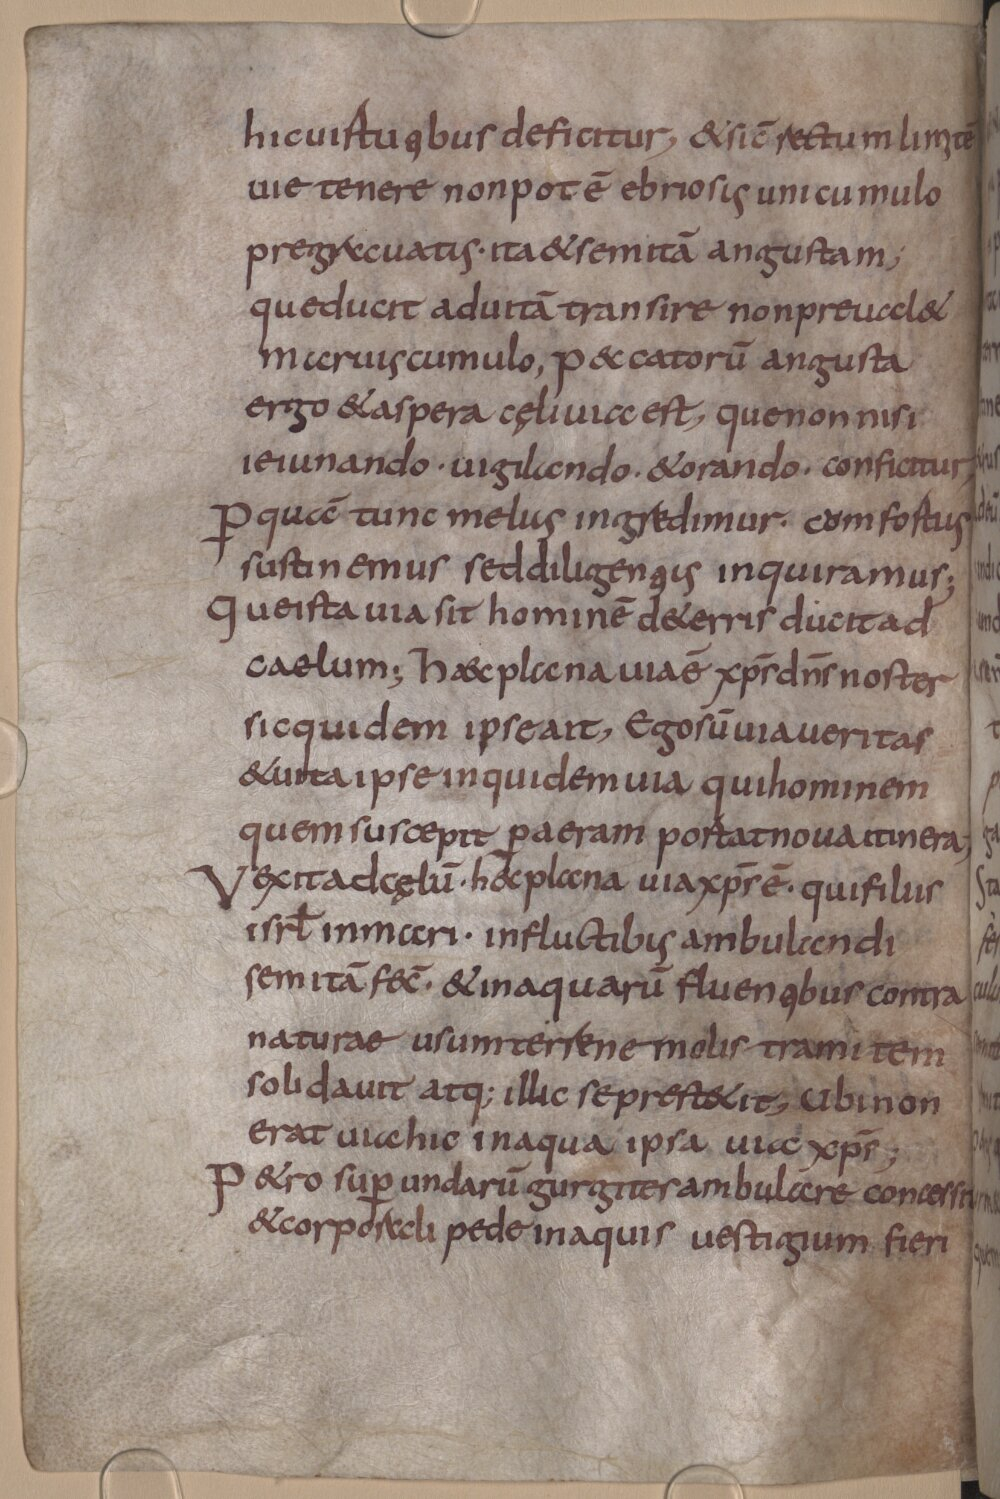 hicuistuqbus deficitur, &sic̄ rectum limitē
uie tenere nonpotē ebriosis uni cumulo
pregrauatis· ita &semitā angustam;
queducit aduitā transire nonpreual&
maruis cumulo, p&catorū angusta
ergo &aspera cęliuia est, quenon nisi
ieiunando· uigilando· &orando· conficitur,
P quā tunc melius ingredimur· com fostus
sustinemus seddiligenqis inquiramus;
Queista uia sit hominē de&erris ducit ad
caelum; H&c plana uiaē xp̄s dn̄s noster
sicquidem ipse ait, Egosū uia ueritas
&uita ipse inquidem uia quihominem
quem suscepit p aeram portat noua itinera;
Vexitadcęlū· h&c plana uia xp̄s ē· qui filius
isrl̄ in mari· influctibus ambulandi
semitā fec̄· &inaquarū fluenqbus contra
naturae usum terrene molis tramitem
solidauit atq; illic se prest&it, Ubi non
erat uia hic inaqua ipsa uia xp̄s;
P&ro sup̄ undarū gurgites ambulare concessit
&corporali pede inaquis uestigium fieri